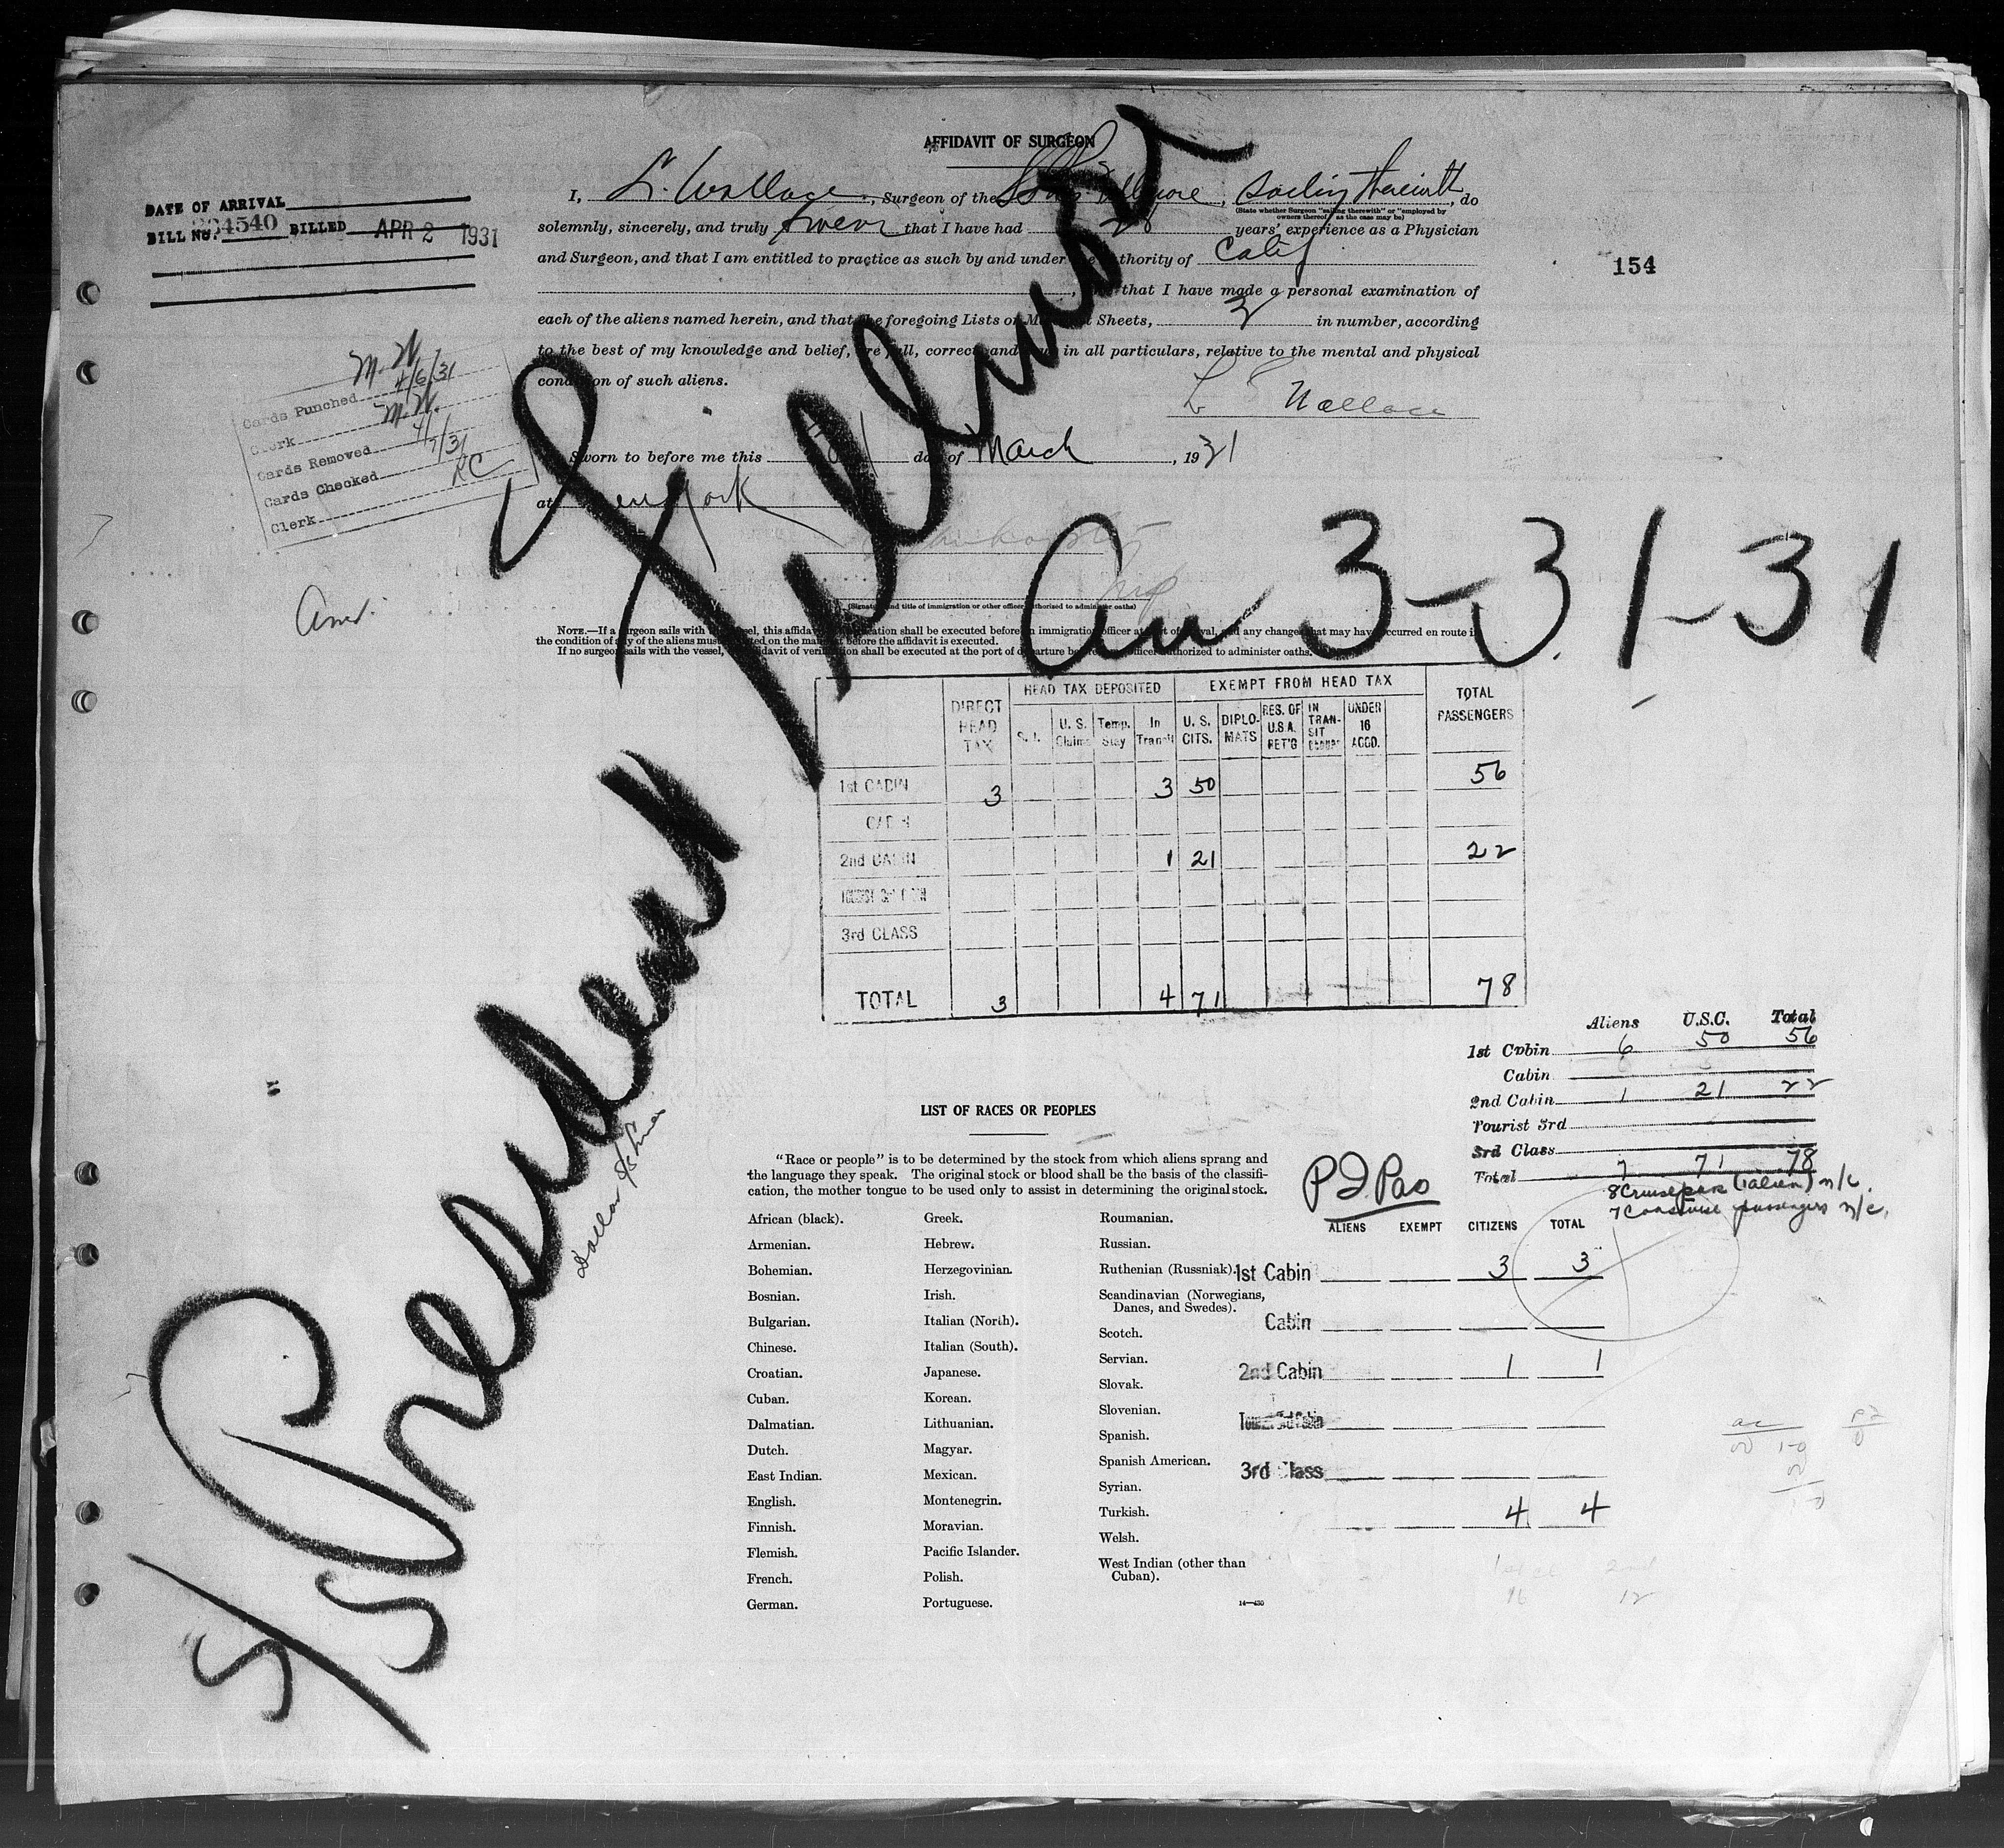 AFFIDAVIT OF SURGEON
I, L. Wallace, Surgeon of the SS Pres. Fillmore, sailing therewith, do
(State whether Surgeon "sailing therewith" or "employed by owners thereof," as the case may be)
solemnly, sincerely, and truly swear that I have had 28 years' experience as a Physician
and Surgeon, and that I am entitled to practice as such by and under the authority of Calif
, that I have made a personal examination of
each of the aliens named herein, and that the foregoing Lists or Manifest Sheets, 3 in number, according
to the best of my knowledge and belief, are full, correct, and true in all particulars, relative to the mental and physical
condition of such aliens.
L Wallace
Sworn to before me this day of March, 1931
at New York
(Signature and title of immigration or other officer authorized to administer oaths)
NOTE.—If a surgeon sails with the vessel, this affidavit shall be executed before an immigration officer at port of arrival, and any changes that may have occurred en route in
the condition of any of the aliens must be noted on the manifest before the affidavit is executed.
If no surgeon sails with the vessel, affidavit of verification shall be executed at the port of departure before officer authorized to administer oaths.
DATE OF ARRIVAL
BILL No. 4540 BILLED APR 2 1931
154
M.W.
Cards Punched 4/6/31
Clerk M.W.
Cards Removed 4/7/31
Cards Checked RC
Clerk
S/S President Fillmore
Arr 3-31-31
DIRECT HEAD TAX
HEAD TAX DEPOSITED
EXEMPT FROM HEAD TAX
TOTAL PASSENGERS
S.I. U.S. Claims Temp. Stay In Transit U.S. CITS. DIPLOMATS RES. OF U.S.A. RET'G IN TRANSIT UNDER 16 ACCD.
1st CABIN 3 3 50 56
CABIN
2nd CABIN 1 21 22
TOURIST 3rd CABIN
3rd CLASS
TOTAL 3 4 71 78
Aliens U.S.C. Total
1st Cabin 6 50 56
Cabin
2nd Cabin 1 21 22
Tourist 3rd
3rd Class
Total 7 71 78
8 Cruise pax (1 alien) n/c.
7 Coastwise passengers n/c.
LIST OF RACES OR PEOPLES
"Race or people" is to be determined by the stock from which aliens sprang and
the language they speak. The original stock or blood shall be the basis of the classifi-
cation, the mother tongue to be used only to assist in determining the original stock.
African (black).
Armenian.
Bohemian.
Bosnian.
Bulgarian.
Chinese.
Croatian.
Cuban.
Dalmatian.
Dutch.
East Indian.
English.
Finnish.
Flemish.
French.
German.
Greek.
Hebrew.
Herzegovinian.
Irish.
Italian (North).
Italian (South).
Japanese.
Korean.
Lithuanian.
Magyar.
Mexican.
Montenegrin.
Moravian.
Pacific Islander.
Polish.
Portuguese.
Roumanian.
Russian.
Ruthenian (Russniak).
Scandinavian (Norwegians,
Danes, and Swedes).
Scotch.
Servian.
Slovak.
Slovenian.
Spanish.
Spanish American.
Syrian.
Turkish.
Welsh.
West Indian (other than
Cuban).
14—430
ALIENS EXEMPT CITIZENS TOTAL
1st Cabin 3 3
Cabin
2nd Cabin 1 1
Tourist 3rd Cabin
3rd Class
4 4